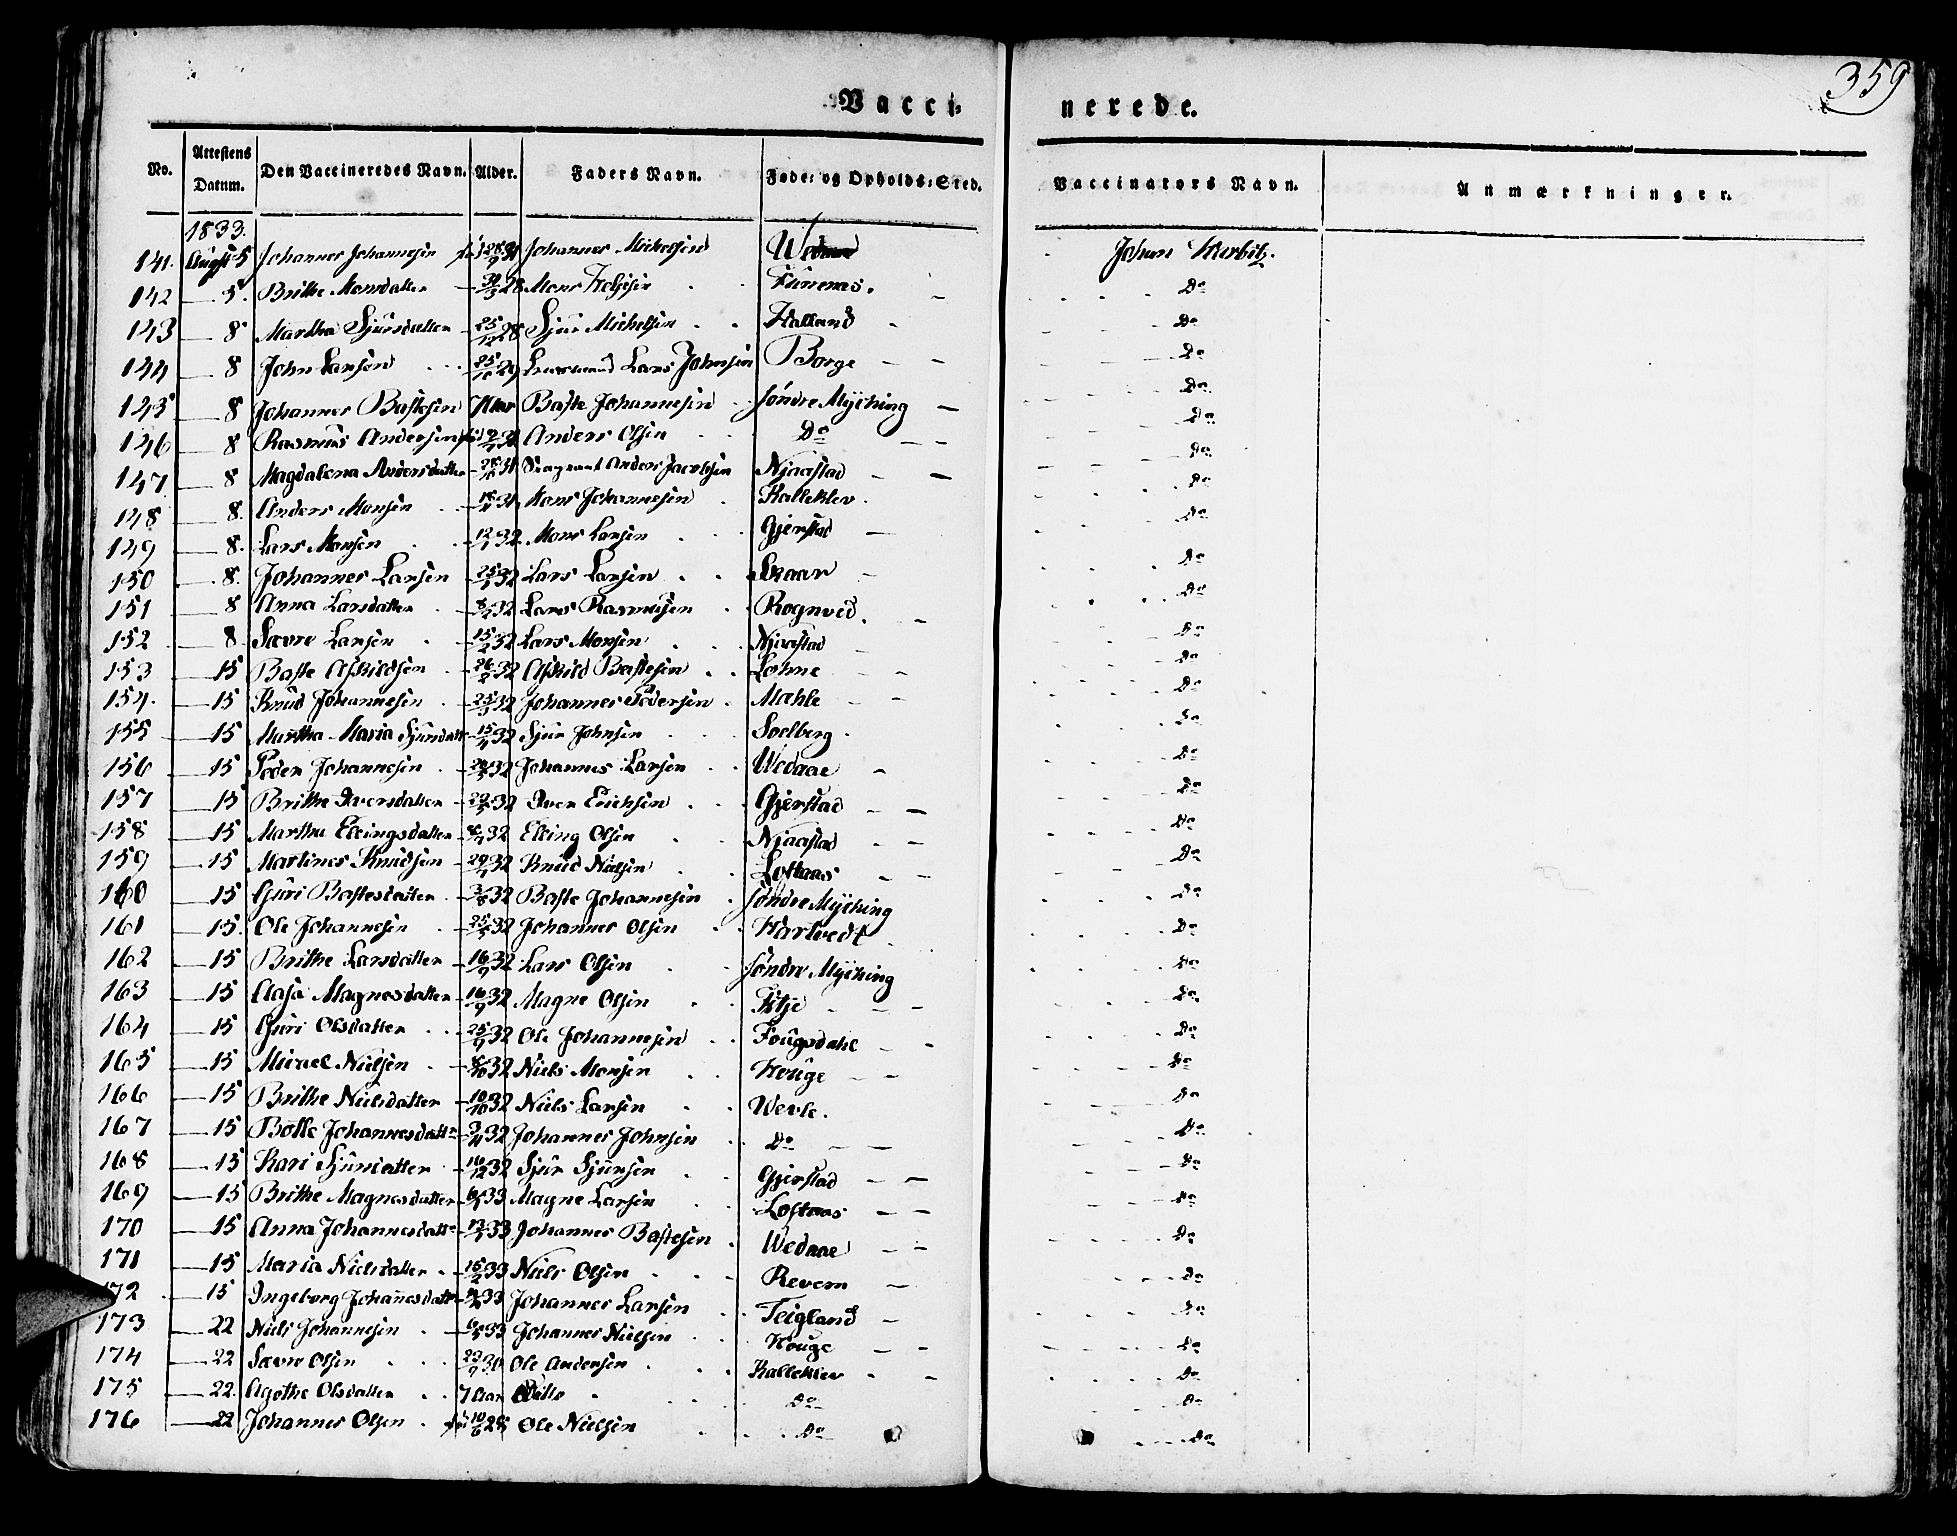 359
Vaccinerede.
No. Attestens Datum. Den Vaccineredes Navn. Alder. Faders Navn. Føde- og Opholds-Sted. Vaccinators Navn. Anmærkninger.
1833.
141. August 5 Johannes Johannesen 31 Johannes Michelsen Johan
142 — 5. Brithe Monsdatter 28 Mons Do
143 — 8 Martha Sjursdatter 25 28 Sjur Michelsen Halland Do
144 — 8 John Larsen 29 Lars Johnsen Borge Do
145 8 Johannes Bastesen Aar Baste Johannesen Søndre Mycking Do
146 8 Rasmus Andersen Anders Olsen Do Do
147 — 8 Magdalena Andersdatter 31 Sergeant Anders Jacobsen Njaastad Do
148 — 8. Anders Monsen 31 Mons Johannesen Kalleklev Do
149 — 8. Lars Monsen 12 32 Mons Larsen Gjerstad Do
150 — 8. Johannes Larsen 25 32 Lars Larsen Skaar Do
151 — 8 Anna Larsdatter 32 Lars Rasmusen Rognved Do
152 — 8 Sævre Larsen 15/2 32 Lars Monsen Njaastad Do
153 — 15 Baste Askildsen 26/2 32 Askild Bastesen Lohne Do
154. — 15 Knud Johannesen 25/3 32 Johannes Pedersen Mæhle Do
155 — 15 Martha Maria Sjursdatt 15/4 32 Sjur Johnsen Soelberg Do
156 — 15 Peder Johannesen 32 Johannes Larsen Wedaae Do
157 — 15 Brithe Iversdatter 32 Iver Erichsen Gjerstad Do
158 — 15 Martha Ellingsdatter 32 Elling Olsen Njaastad Do
159 — 15 Martines Knudsen 29 32 Knud Nielsen Loftaas Do
160 — 15 Guri Bastesdatter 3/8 32 Baste Johannesen Søndre Mycking Do
161 — 15. Ole Johannesen 25 32 Johannes Olsen Hartvedt Do
162 — 15 Brithe Larsdatter 16/9 32 Lars Olsen Søndre Mycking Do
163 — 15 Aasa Magnesdatter 16/9 32 Magne Olsen Do
164 — 15 Guri Olsdatter 25/9 32 Ole Johannesen Fougsdahl Do
165 — 15 Micael Nielsen 8/10 32 Niels Monsen Houge Do
166 — 15 Brithe Nielsdatter 10/10 32 Niels Larsen Wevle. Do
167 — 15 Botle Johannesdattr 3/11 32 Johannes Johnsen Do Do
168 — 15 Kari Sjursdatter 16/12 32 Sjur Sjursen Gjerstad Do
169 — 15 Brithe Magnesdatter 33 Magne Larsen Loftaas Do
170 — 15 Anna Johannesdattr 33 Johannes Bastesen Wedaae Do
171 — 15 Maria Nielsdatter 15/2 33 Niels Olsen Revem Do
172 15 Ingeborg Johañesdattr 33 Johannes Larsen Teigland Do
173 — 22 Niels Johannesen 6/5 33 Johannes Nielsen Houge Do
174 — 22 Sævre Olsen 23/9 30 Ole Andersen Kalleklev Do
175 — 22. Agethe Olsdatter 7 Aar Ditto Do Do
176 — 22 Johannes Olsen 10/6 28 Ole Nielsen Do Do